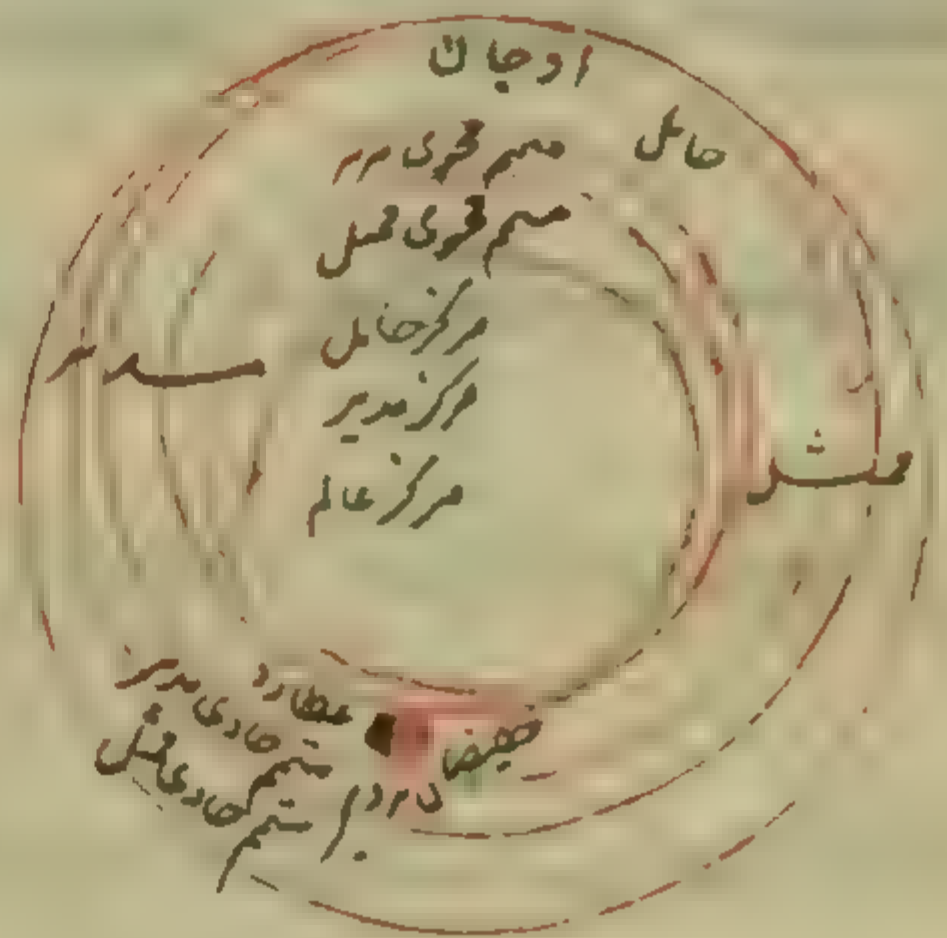 اوجان
حامل
متمم محوی مدیر
متمم محوی ممثل
مرکز حامل
مرکز مدیر
مرکز عالم
مدیر
ممثل
عطارد
حضیض
متمم حاوی مدیر
متمم حاوی ممثل